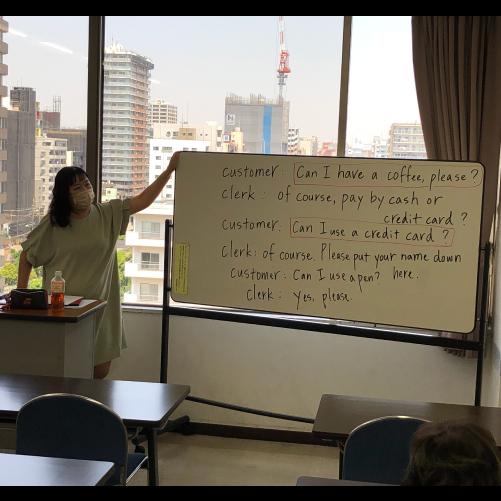 customer: Can I have a coffee, please?
clerk: of course, pay by cash or
credit card?
customer: Can I use a credit card?
Clerk: of course. Please put your name down
here.
customer: Can I use a pen?
clerk: yes, please.